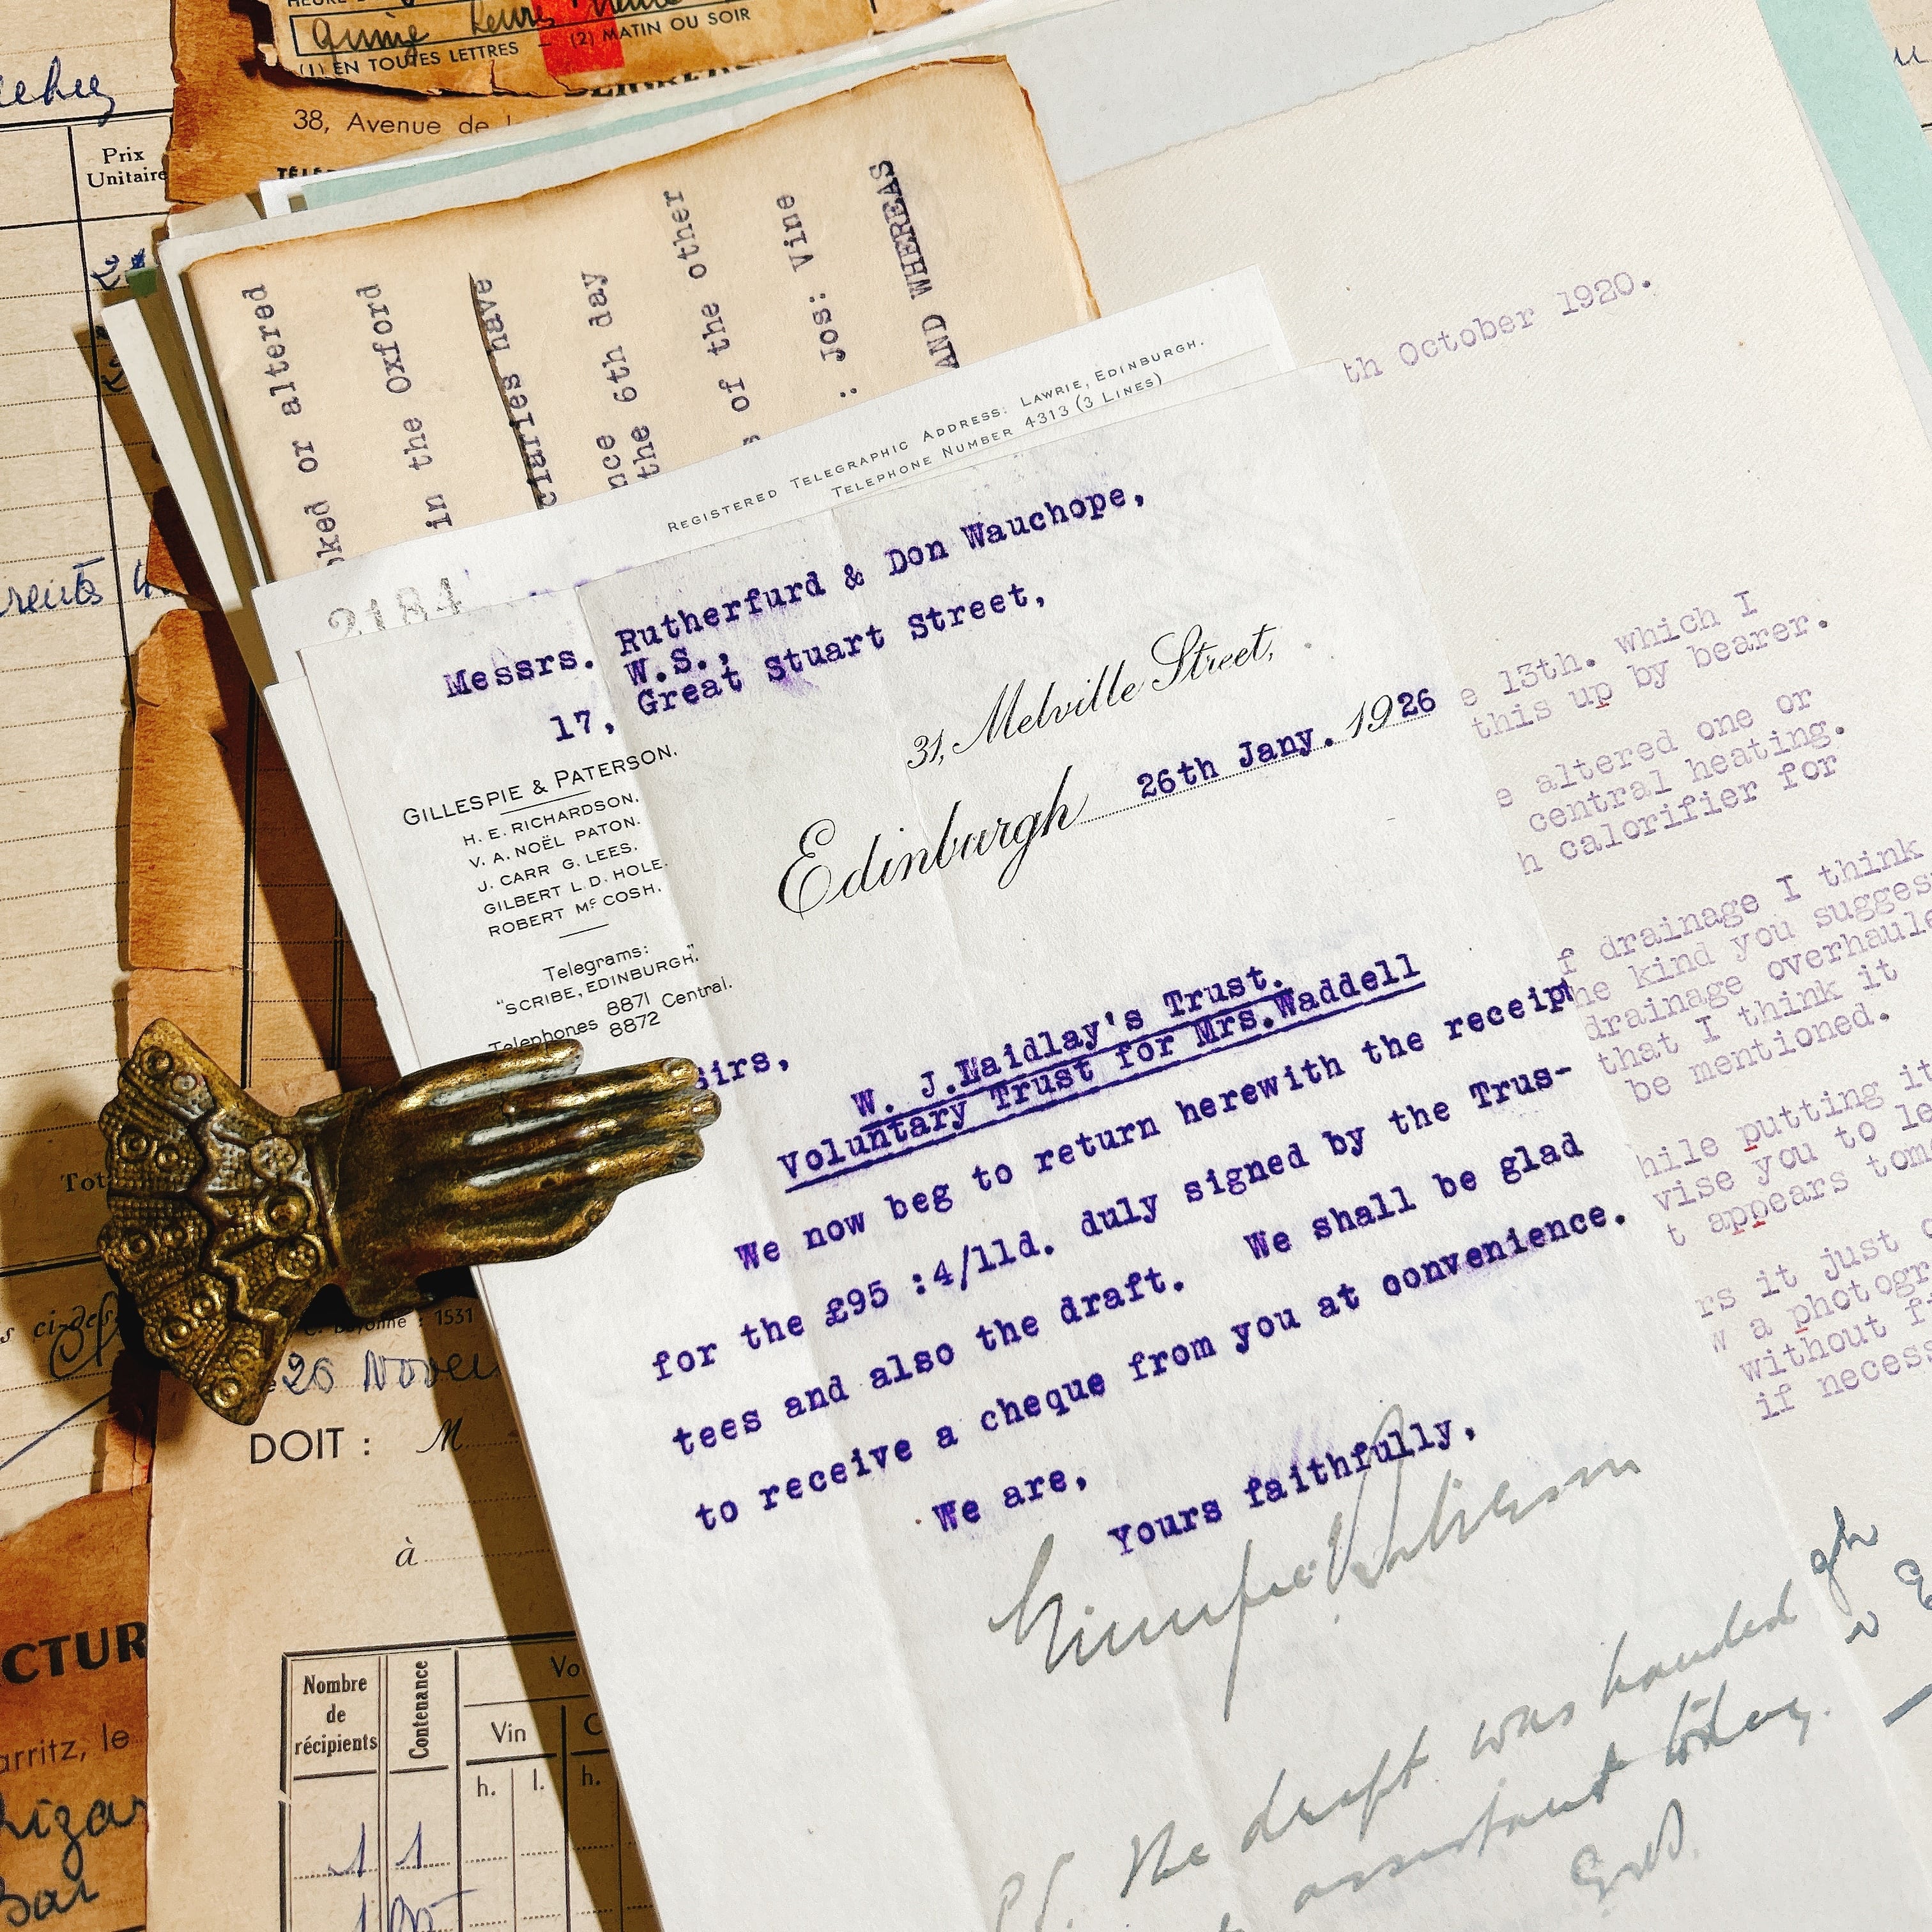 quinze heures
(1) EN TOUTES LETTRES — (2) MATIN OU SOIR
38, Avenue de
Prix
Unitaire
ked or altered
in the Oxford
have
nce 6th day
the
s of the other
: Jos: Vine
AND WHEREAS
REGISTERED TELEGRAPHIC ADDRESS: LAWRIE, EDINBURGH.
TELEPHONE NUMBER 4313 (3 LINES)
2184
Messrs. Rutherfurd & Don Wauchope,
W.S.,
17, Great Stuart Street,
31, Melville Street,
Edinburgh 26th Jany. 1926
GILLESPIE & PATERSON.
H. E. RICHARDSON.
V. A. NOËL PATON.
J. CARR G. LEES.
GILBERT L. D. HOLE.
ROBERT Mc COSH.
Telegrams:
"SCRIBE, EDINBURGH."
Telephones 8871 Central.
8872
Sirs,
W. J.Laidlay's Trust.
Voluntary Trust for Mrs.Waddell
We now beg to return herewith the receipt
for the £95 :4/11d. duly signed by the Trus-
tees and also the draft. We shall be glad
to receive a cheque from you at convenience.
We are,
Yours faithfully,
PS. The draft was handed
assistant today.
th October 1920.
e 13th. which I
this up by bearer.
e altered one or
central heating.
h calorifier for
f drainage I think
he kind you sugges
drainage overhaule
that I think it
be mentioned.
hile putting it
vise you to le
t appears tom
rs it just
w a photogr
without fi
if necess
Tot
ci-des
1531
26 Novem
DOIT : M
à
CTUR
arritz, le
Bar
Nombre
de
récipients
Contenance
Vin
h. l. h.
1 1